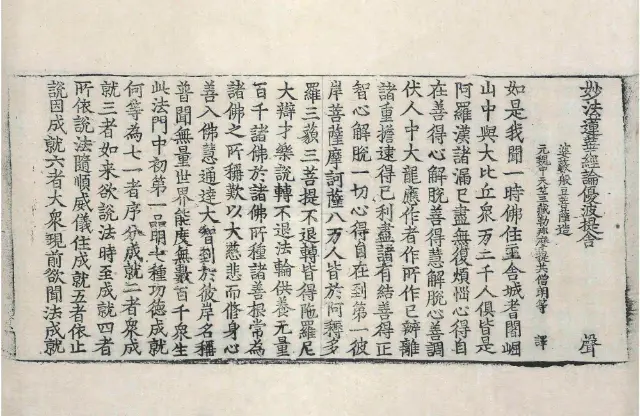 妙法蓮華經論優波提舍 聲
婆藪般豆菩薩造
元魏中天竺三藏勒那摩提共僧朗等 譯
如是我聞一時佛住王舍城耆闍崛
山中與大比丘衆万二千人俱皆是
阿羅漢諸漏已盡無復煩惱心得自
在善得心解脫善得慧解脫心善調
伏人中大龍應作者作所作已辦離
諸重擔逮得己利盡諸有結善得正
智心解脫一切心得自在到第一彼
岸菩薩摩訶薩八万人皆於阿耨多
羅三藐三菩提不退轉皆得陁羅尼
大辯才樂說轉不退法輪供養无量
百千諸佛於諸佛所種諸善根常為
諸佛之所稱歎以大慈悲而修身心
善入佛慧通達大智到於彼岸名稱
普聞無量世界能度無數百千衆生
此法門中初第一品明七種功德成就
何等為七一者序分成就二者衆成
就三者如來欲說法時至成就四者
所依說法隨順威儀住成就五者依止
說因成就六者大衆現前欲聞法成就